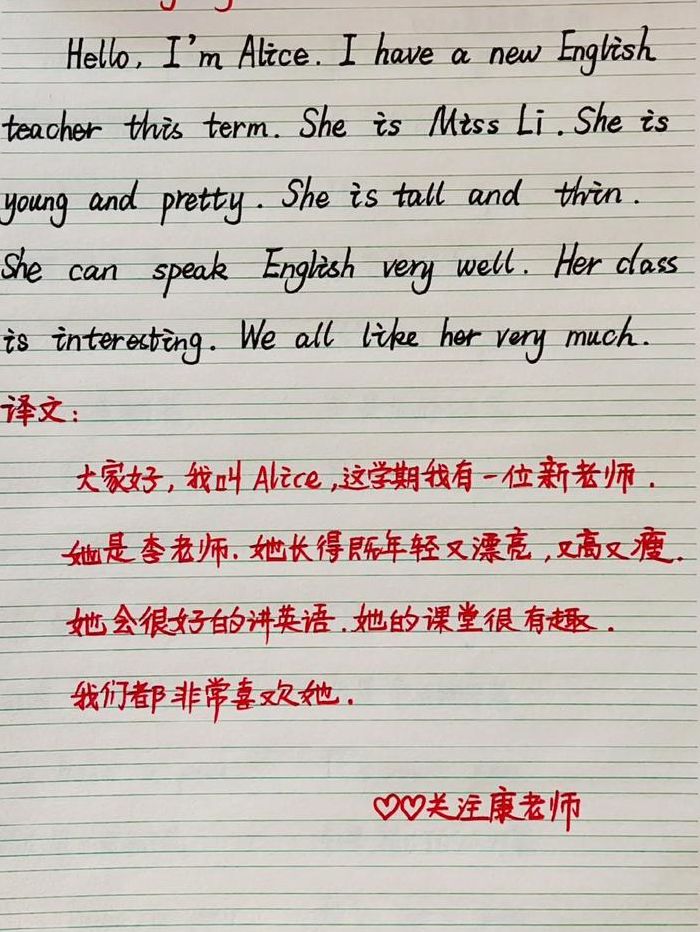 Hello, I'm Alice. I have a new English
teacher this term. She is Miss Li. She is
young and pretty. She is tall and thin.
She can speak English very well. Her class
is interesting. We all like her very much.
译文:
大家好,我叫Alice,这学期我有一位新老师.
她是李老师.她长得既年轻又漂亮,又高又瘦.
她会很好的讲英语.她的课堂很有趣.
我们都非常喜欢她.
♡♡关注康老师